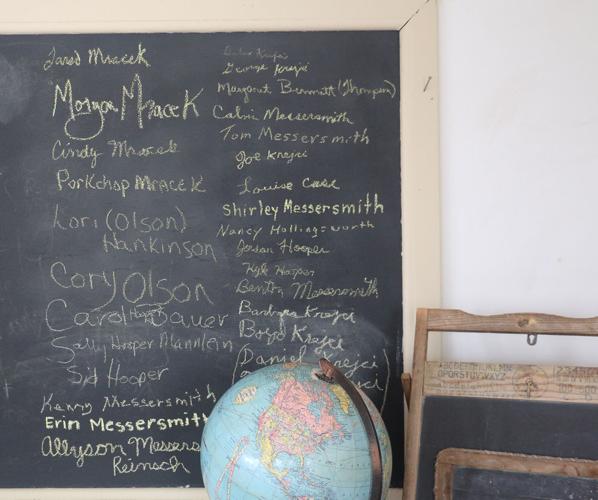 Jared Mracek
Morgan Mracek
Cindy Mracek
Porkchop Mracek
Lori (Olson)
Hankinson
Cory Olson
Carol Hooper Bauer
Sally Hooper Mannlein
Sid Hooper
Kenny Messersmith
Erin Messersmith
Allyson Messers
Reinsch
Krejci
George Krejci
Margaret Brummett (Thompson)
Calvin Messersmith
Tom Messersmith
Joe Krejci
Louise Case
Shirley Messersmith
Nancy Hollingsworth
Jordan Hooper
Kyle Hooper
Benton Messersmith
Barbara Krejci
Boyd Krejci
(Daniel Krejci
ABCDEFGHIJKLMN
OPQRSTUVWXYZ